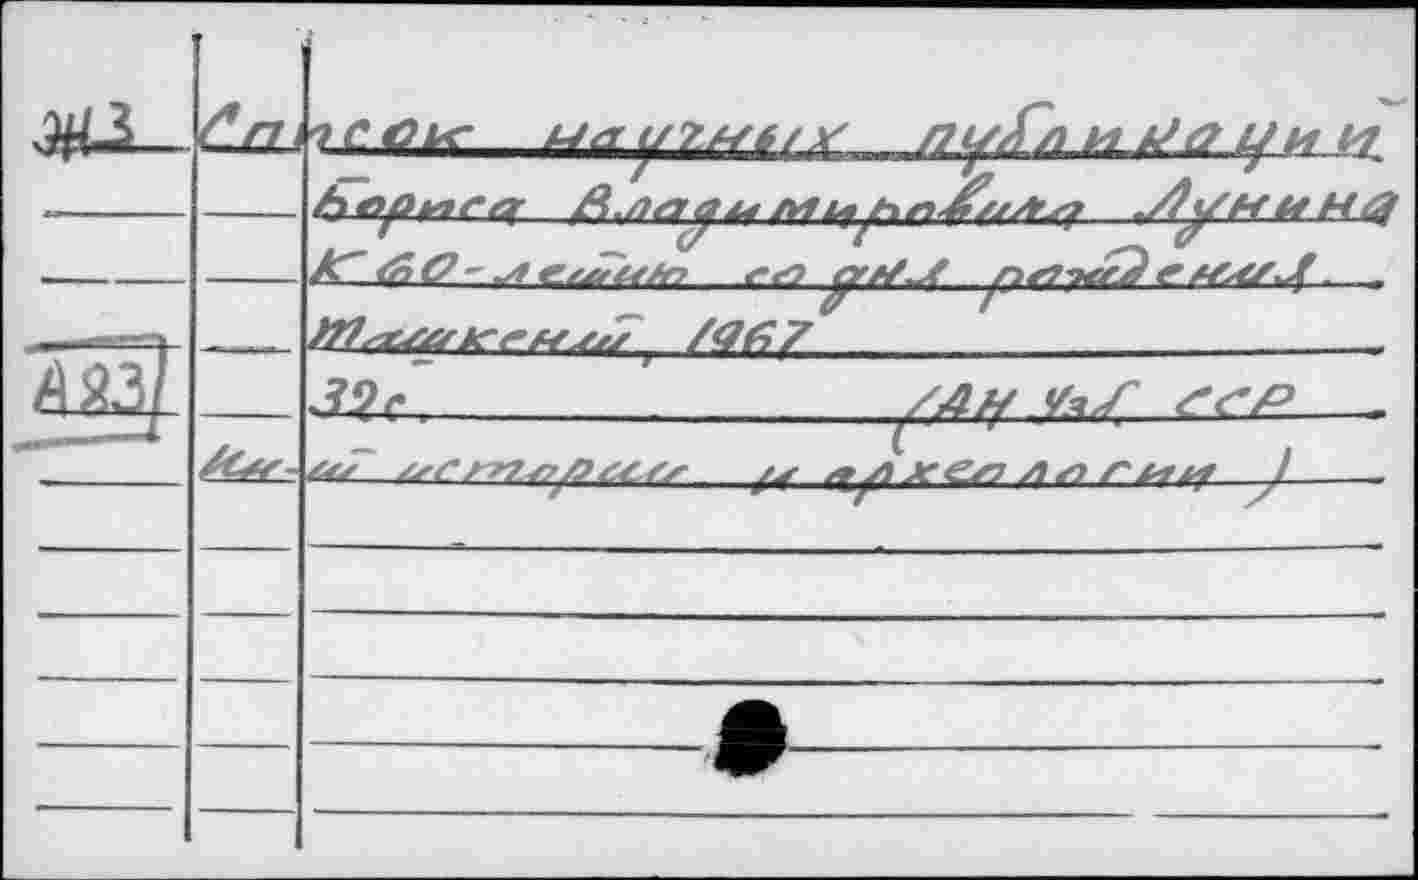 Список научных публикаций
Бориса Владимировича Лунина
К 60-летию со дня рождения.
Ташкент, 1967
А93
39с. (АН УзС ССР
Ин-ит истории и археологии)